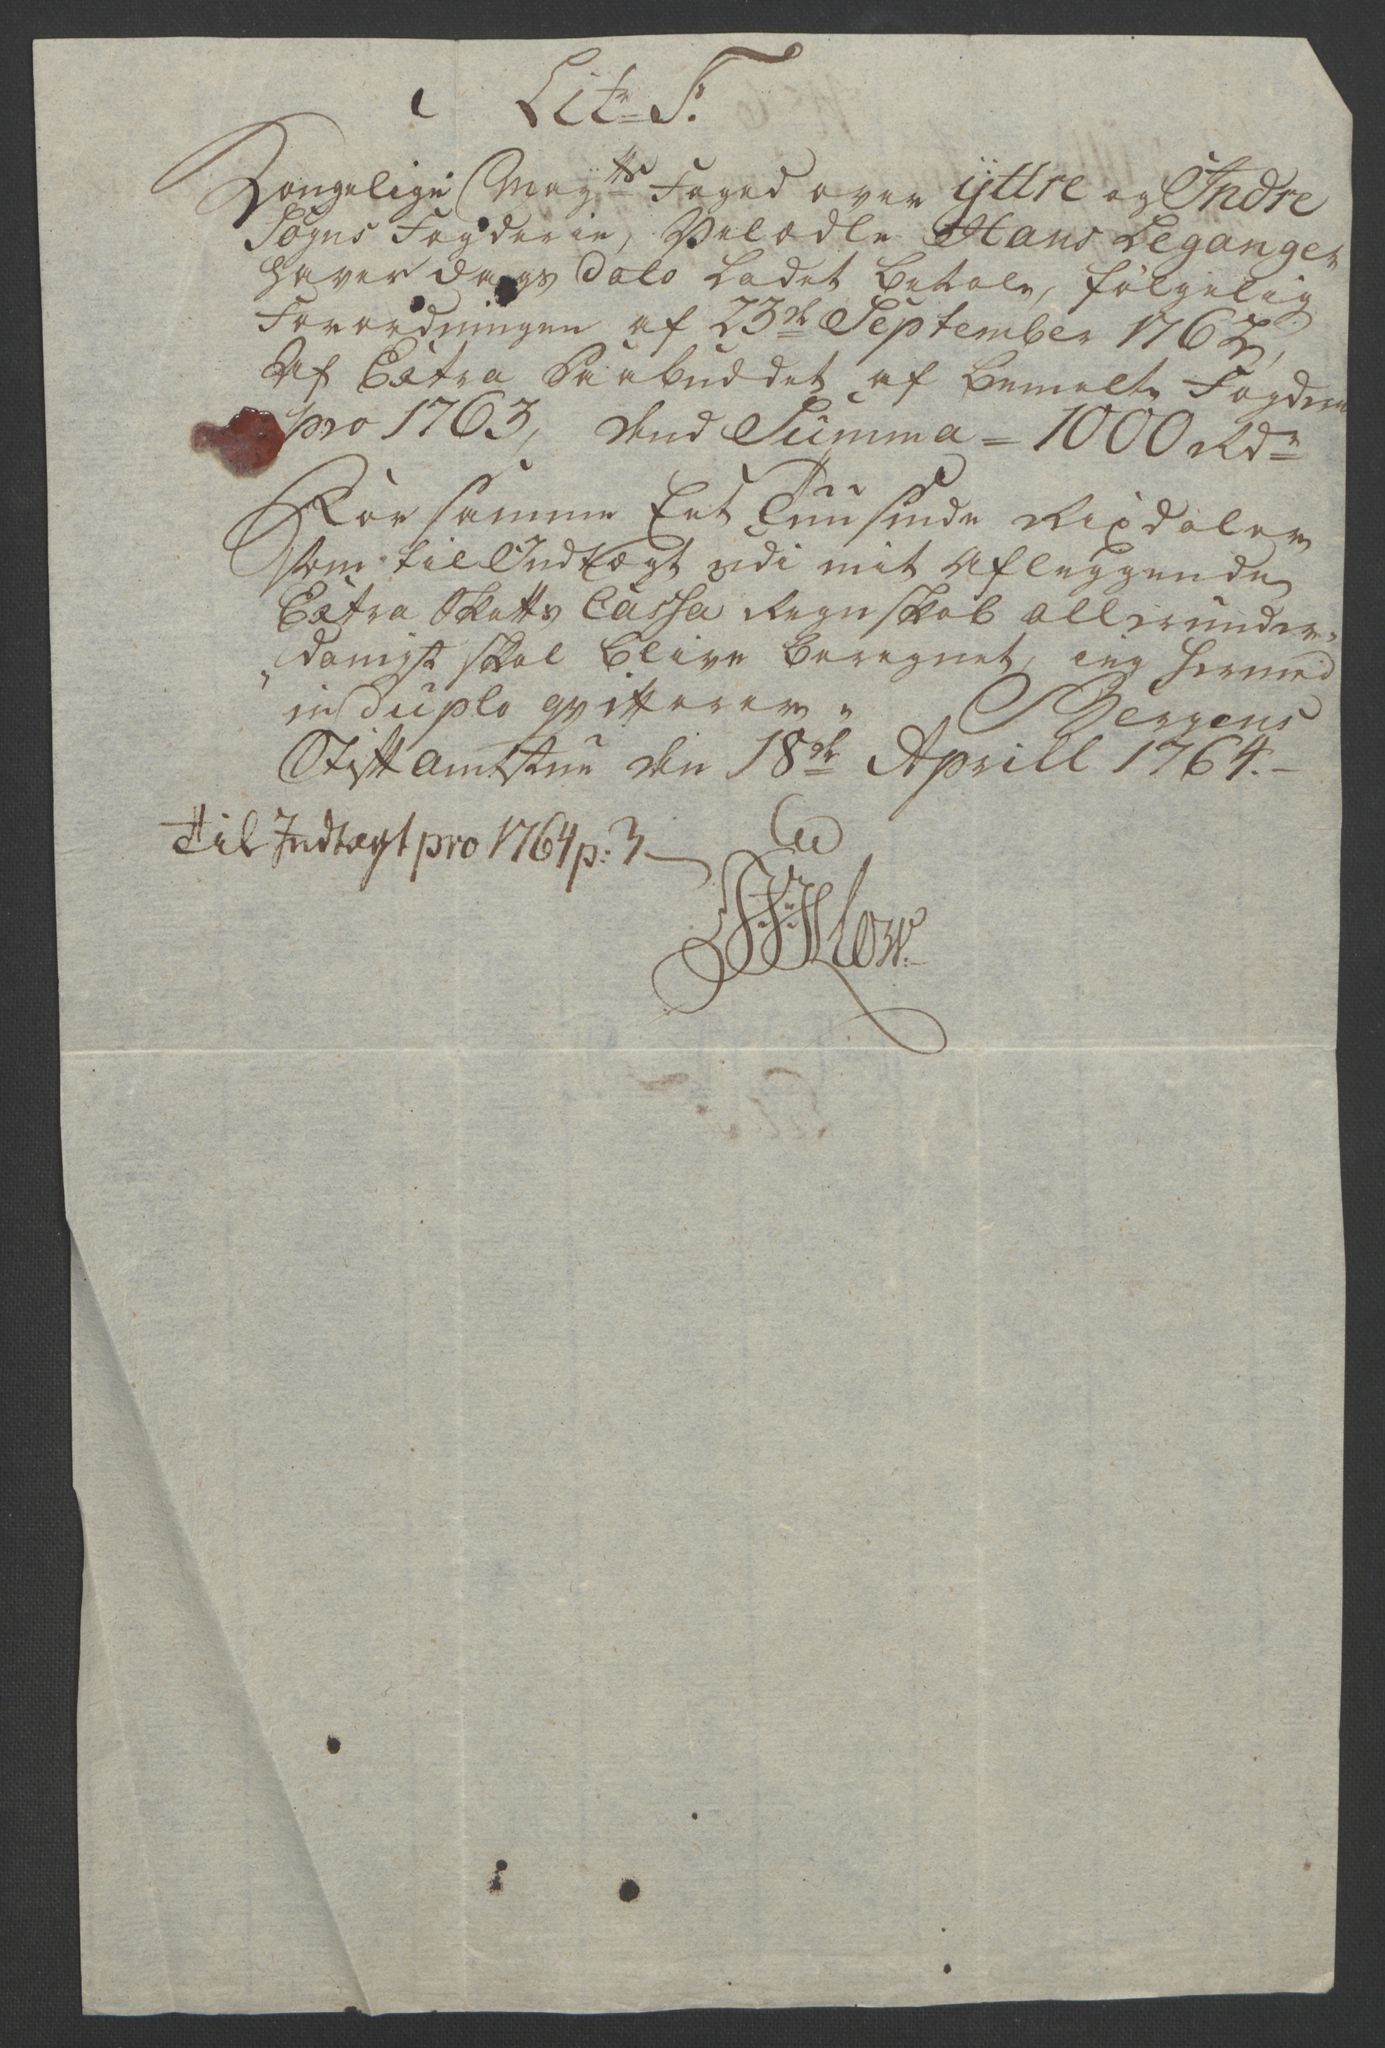 Litr S.
Kongelige Mayts Foged over ÿttre og Indre
Sogns Fogderie, Velædle Hans Leganger
haver Dags Dato ladet betale, følgelig
Forordningen af 23de September 1762,
Af Extra Paabuddet af bemelte Fogderie
pro 1763, dend Summa = 1000 Rdr
For samme Eet Tuusinde Rixdaler
som til Indtægt udi mit aflæggende
Extra Skatts Cassa Regnskab allerunder-
danigst skal blive beregnet, ieg hermed
in Duplo qvitterer. Bergens
Stiftamtstue den 18de Aprill 1764.
Til Indtægt pro 1764 p: 3